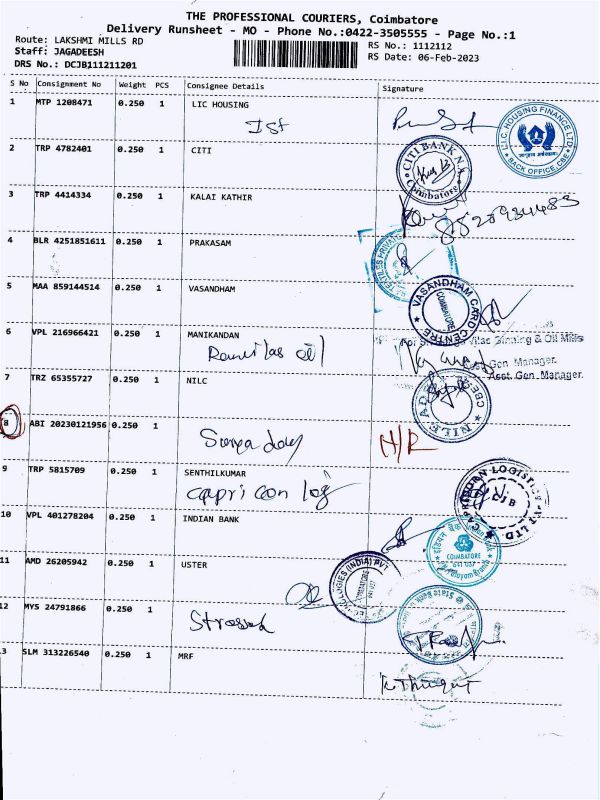 THE PROFESSIONAL COURIERS, Coimbatore
Delivery Runsheet - MO - Phone No.:0422-3505555 - Page No.:1
Route: LAKSHMI MILLS RD
Staff: JAGADEESH
DRS No.: DCJB111211201
RS No.: 1112112
RS Date: 06-Feb-2023
S No Consignment No Weight PCS Consignee Details Signature
1 MTP 1208471 0.250 1 LIC HOUSING
Ist
L.I.C. HOUSING FINANCE LTD
BACK OFFICE, CBE
2 TRP 4782401 0.250 1 CITI
CITIBANK N.A
Coimbatore
3 TRP 4414334 0.250 1 KALAI KATHIR
4 BLR 4251851611 0.250 1 PRAKASAM
5 MAA 859144514 0.250 1 VASANDHAM
VASANDHAM CARD CENTRE
COIMBATORE
6 VPL 216966421 0.250 1 MANIKANDAN
Ginning & Oil Mills
Asst.Gen. Manager.
Asst.Gen. Manager.
7 TRZ 65355727 0.250 1 NILC
8 ABI 20230121956 0.250 1
Surya dav
N/R
9 TRP 5815709 0.250 1 SENTHILKUMAR
Capricon log
10 VPL 401278204 0.250 1 INDIAN BANK
COIMBATORE
11 AMD 26205942 0.250 1 USTER
12 MYS 24791866 0.250 1
13 SLM 313226540 0.250 1 MRF